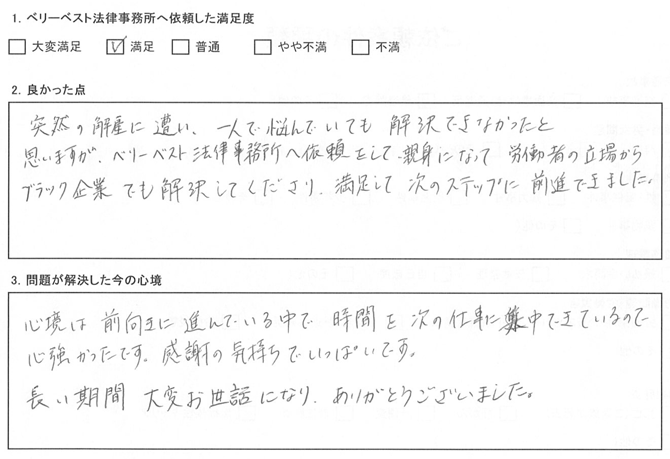 1. ベリーベスト法律事務所へ依頼した満足度
□ 大変満足 ☑ 満足 □ 普通 □ やや不満 □ 不満
2. 良かった点
突然の解雇に遭い、一人で悩んでいても 解決できなかったと
思いますが、ベリーベスト法律事務所へ依頼をして、親身になって 労働者の立場から
ブラック企業 でも解決してくださり、満足して 次のステップに 前進できました。
3. 問題が解決した今の心境
心境は 前向きに 進んでいる中で 時間を 次の仕事に集中できているので
心強かったです。感謝の気持ちでいっぱいです。
長い期間 大変お世話になり、ありがとうございました。